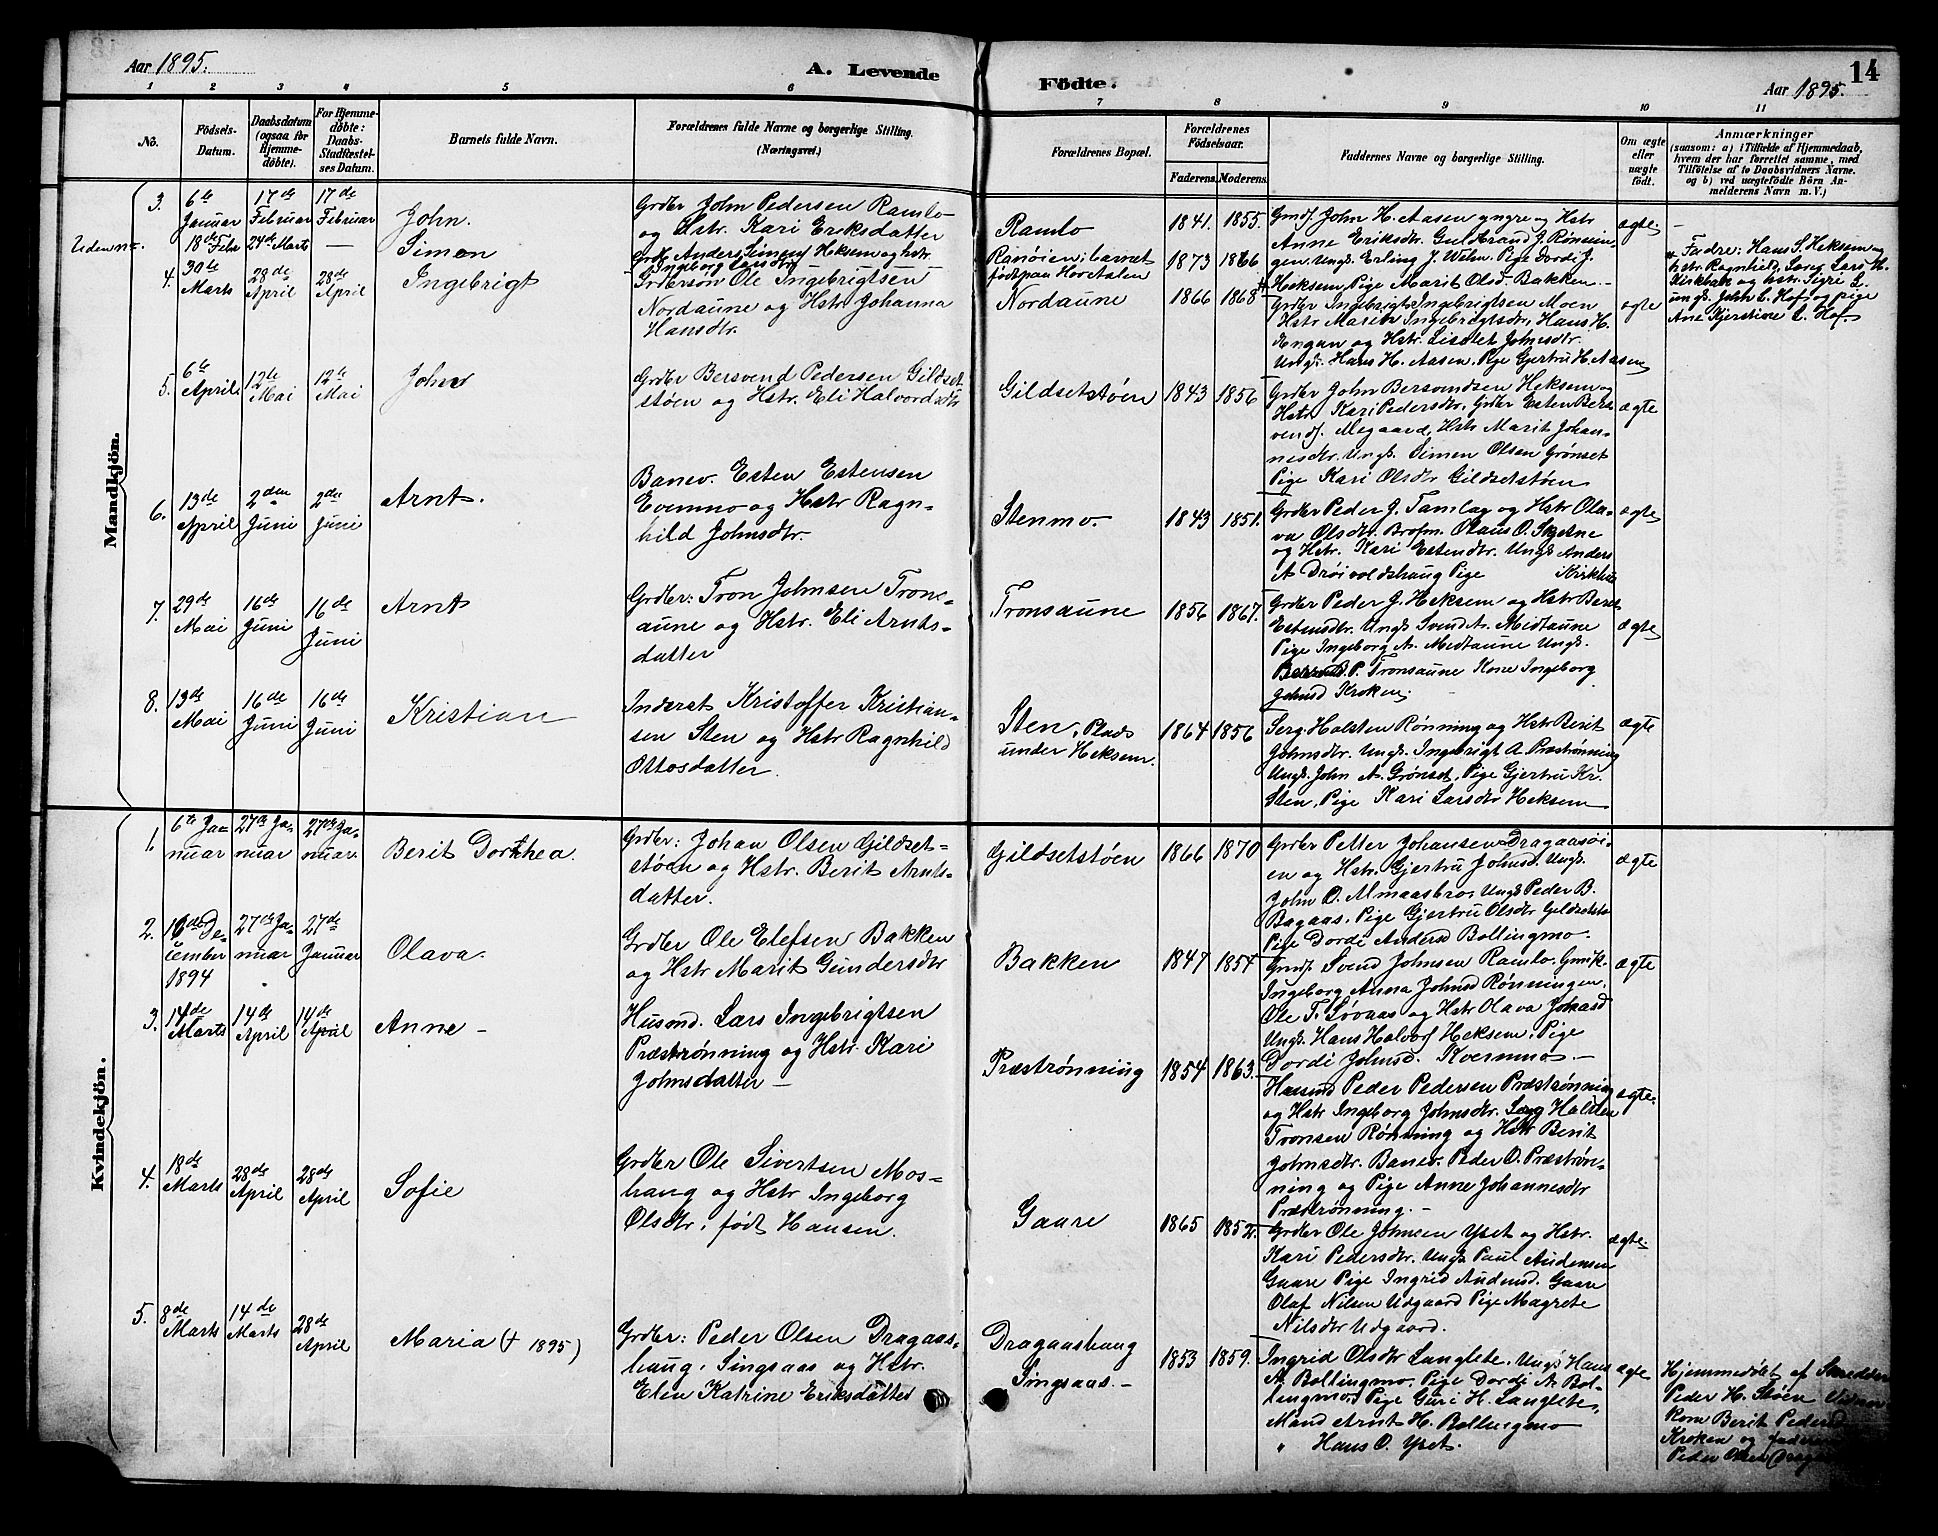 Aar 1895.
A. Levende
Födte.
Aar 1895.
14
1 2 3 4 5 6 7 8 9 10 11
No.
Födsels-
Datum.
Daabsdatum
(ogsaa for
Hjemme-
döbte).
For Hjemme-
döbte:
Daabs-
Stadfæstel-
ses Datum.
Barnets fulde Navn.
Forældrenes fulde Navne og borgerlige Stilling.
(Næringsvei.)
Forældrenes Bopæl.
Forældrenes
Födselsaar.
Faderens.
Moderens.
Faddernes Navne og borgerlige Stilling.
Om ægte
eller
uægte
födt.
Anmærkninger
(saasom: a) i Tilfælde af Hjemmedaab,
hvem der har forrettet samme, med
Tilföielse af to Daabsvidners Navne.
og b) ved uægtefödte Börn An-
melderens Navn m. V.)
Mandkjön.
3. 6te Januar
17de Februar
17de Februar
John.
Grdbr John Pedersen Ramlo
og Hstr. Kari Eriksdatter
Ramlo
1841. 1855.
Gmdf. John H. Aasen yngre og Hstr
Anne Eriksdtr. Guldbrand J. Rönnin-
gen. Ungk. Erling J. Welm. Pige Dordi J.
Heksem, Pige Marit Olsd. Bakken.
ægte
Uden nr.
18de Febr 24de Marts —
Simon
Grdb. Anders Simens. Heksem og hstr.
Ingeborg Larsdtr
Ranöien i bernet
født paa Horstalen
1873 1866
* Fadre: Hans S. Heksem og
hstr. Ragnhild, Særg. Lars H.
Kirkbak og hstr. Sigri L.
ungk. John L. Hof og pige
Ane Kjerstine L. Hof.
4. 30te Marts
28de April
28de April
Ingebrigt
Grdersøn Ole Ingebrigtsen
Nordaune og Hstr Johanna
Hansdtr.
Nordaune
1866 1868
Grdbr Ingebrigt Ingebrigtsen Moen
Hstr Marit Ingebrigtsdtr, Hans H.
Engan og Hstr. Lisbet Johnsdtr.
Ungk. Hans H. Aasen, Pige Gjertru H. Aasen
ægte
5. 6te April
12te Mai
12te Mai
John
Grdbr Bersvend Pedersen Gildset
støen og Hstr. Eli Halvordsdtr
Gildsetstøen
1843 1856
Grdbr John Bersvendsen Heksem og
Hstr. Kari Pedersdtr. Grdbr Esten Bers
vends. Megaard, Hstr Marit Johan-
nesdtr. Ungk. Simen Olsen Grønset
Pige Kari Olsdtr Gildsetstøen
ægte
6. 13de April
2den Juni
2den Juni
Arnt.
Banev. Esten Estensen
Evenmo og Hstr Ragn-
hild Johnsdtr.
Stenmo.
1843 1851.
Grdbr Peder J. Tamlag og Hstr Ola-
va Olsdtr. Brofm. Olaus O. Skjetne
og Hstr. Kari Estendtr. Ungk. Anders
A Drøivoldshaug Pige Kirkhus
ægte
7. 29de Mai
16de Juni
16de Juni
Arnt
Grdbr: Tron Johnsen Trons-
aune og Hstr. Eli Arnts-
datter
Tronsaune
1856 1867.
Grdbr Peder J. Heksem og Hstr Beret
Estensdtr. Ungk. Svend A. Midtaune
Pige Ingeborg A. Midtaune Ungk.
P. Tronsaune Kone Ingeborg
Johnsd Kroken.
ægte
8. 13de Mai
16de Juni
16de Juni
Kristian
Inderst Kristoffer Kristian-
sen Sten og Hstr Ragnhild
Ottosdatter.
Sten, Plads
under Heksem.
1864 1856
Serg. Halsten Rønning og Hstr Berit
Johnsdtr. Ungk. Ingebrigt A. Præstrønning
Ungk. John A. Grønset, Pige Gjertru Kr.
Sten, Pige Kari Larsdtr Heksem
ægte
Kvindekjön.
1. 6te Ja-
nuar
27de Ja-
nuar
27de Ja-
nuar.
Berit Dorthea.
Grdbr: Johan Olsen Gildset-
støen og Hstr. Berit Arnts-
datter.
Gildsetstøen
1866 1870
Grdbr Petter Johansen Dragaasøi-
en og Hstr. Gjertru Johnsd. Ungk.
John O. Almaasbro, Ungk Peder B.
Bagaas, Pige Gjertru Olsdtr Gildsetstø
Pige Dordi Andersd Bollingmo.
ægte
2. 16de De-
cember
1894
27de Ja-
nuar
27de
Januar
Olava.
Grdbr Ole Elefsen Bakken
og Hstr Marit Gundersdtr
Bakken
1847 1854
Gmdf. Svend Johnsen Ramlo. Gmfk.
Ingeborg Anna Johnsd Rønningen.
Ole T. Løvaas og Hstr Olava Johansd
Ungk. Hans Halvors Heksem. Pige
Dordi Johnsd. Kvernmo —
ægte
3. 14de Marts
14de April
14de April
Anne —
Husmd. Lars Ingebrigtsen
Præstrønning og Hstr. Kari
Johnsdatter —
Præstrønning
1854 1863.
Husmd Peder Pedersen Præstrønning
og Hstr Ingeborg Johnsdtr. Serg Halsten
Tronsen Rønning og Hstr Berit
Johnsdtr. Banev. Peder O. Præstrøn-
ning og Pige Anne Johannesdtr
Præstrønning. —
ægte.
4. 18de Marts
28de April
28de April
Sofie
Grdbr Ole Sivertsen Mos-
haug og Hstr Ingeborg
Olsdtr, født Hansen.
Gaare
1865 1852.
Grdbr Ole Johnsen Yset og Hstr.
Kari Pedersdtr. Ungk Paul Audensen
Gaare Pige Ingrid Audensd. Gaare
Olaf Nilsen Udgaard Pige Magrete
Nilsdtr Udgaard.
ægte.
5. 8de Marts
14de Marts
28de April
Maria († 1895)
Grdbr: Peder Olsen Dragaas-
haug, Singsaas og Hstr.
Elen Katrine Eriksdatter
Dragaashaug
Singsaas. —
1853 1859.
Ingrid Olsdtr Langlete. Ungk. Hans
A. Bollingmo. Pige Dordi A. Bol-
lingmo. Pige Guri H. Langlete,
Mand Arnt H. Bollingmo
" Hans O. Yset.
ægte
Hjemmedøbt af Skrædder
Peder H. Støen
Kone Berit Pedersd
Kroken og faderen
Peder Olsen